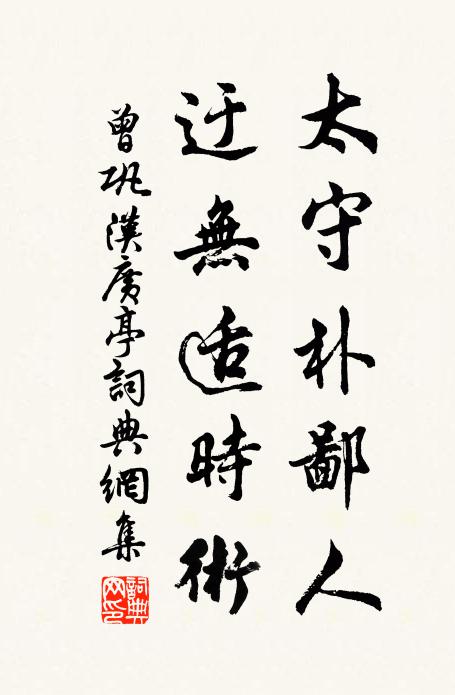 太守朴鄙人
迂無适時術
曾巩漢廣亭詞典網集
詞典網印